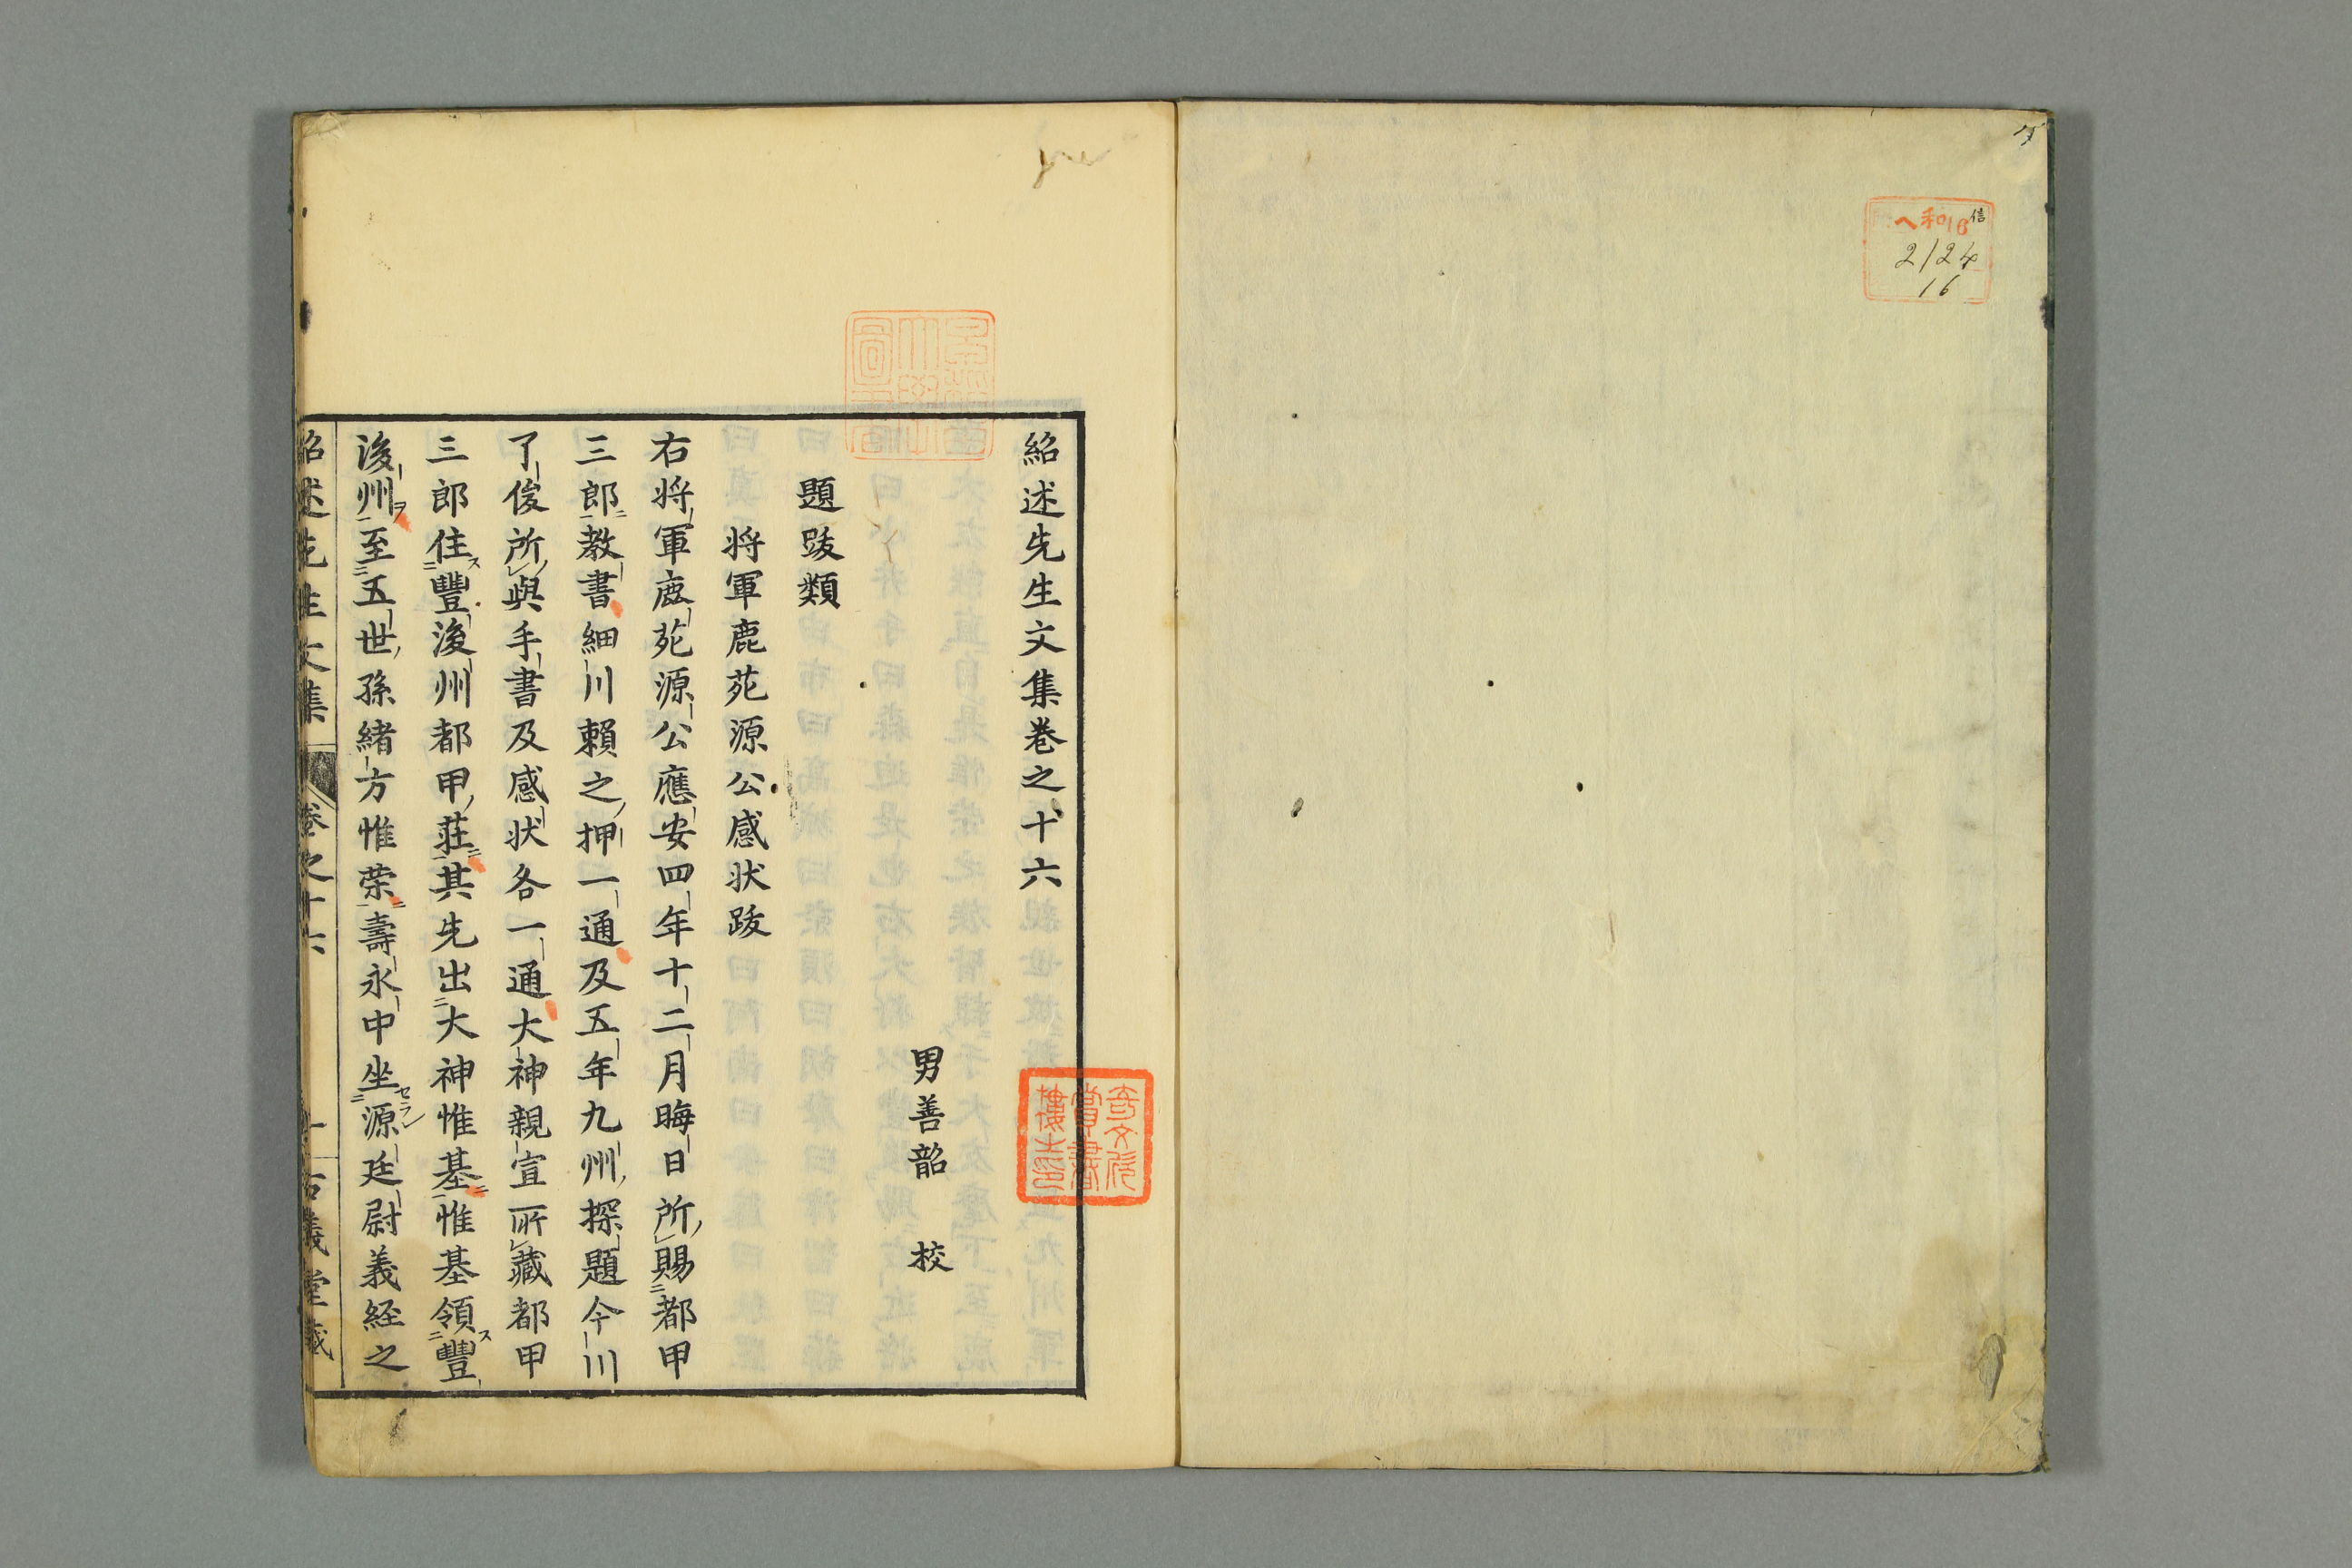 信
ヘ和16
2124
16
紹述先生文集巻之十六
男善韶 校
題跋類
将軍鹿苑源公感状跋
右将軍鹿苑源公應安四年十二月晦日所賜都甲
三郎教書細川賴之押一通及五年九州探題今川
了俊所與手書及感状各一通大神親宣所藏都甲
三郎住豐後州都甲莊其先出大神惟基惟基領豐
後州至五世孫緒方惟榮壽永中坐源廷尉義経之
紹述先生文集 巻之十六 一 古義堂藏
奇文欣賞書樓圭印